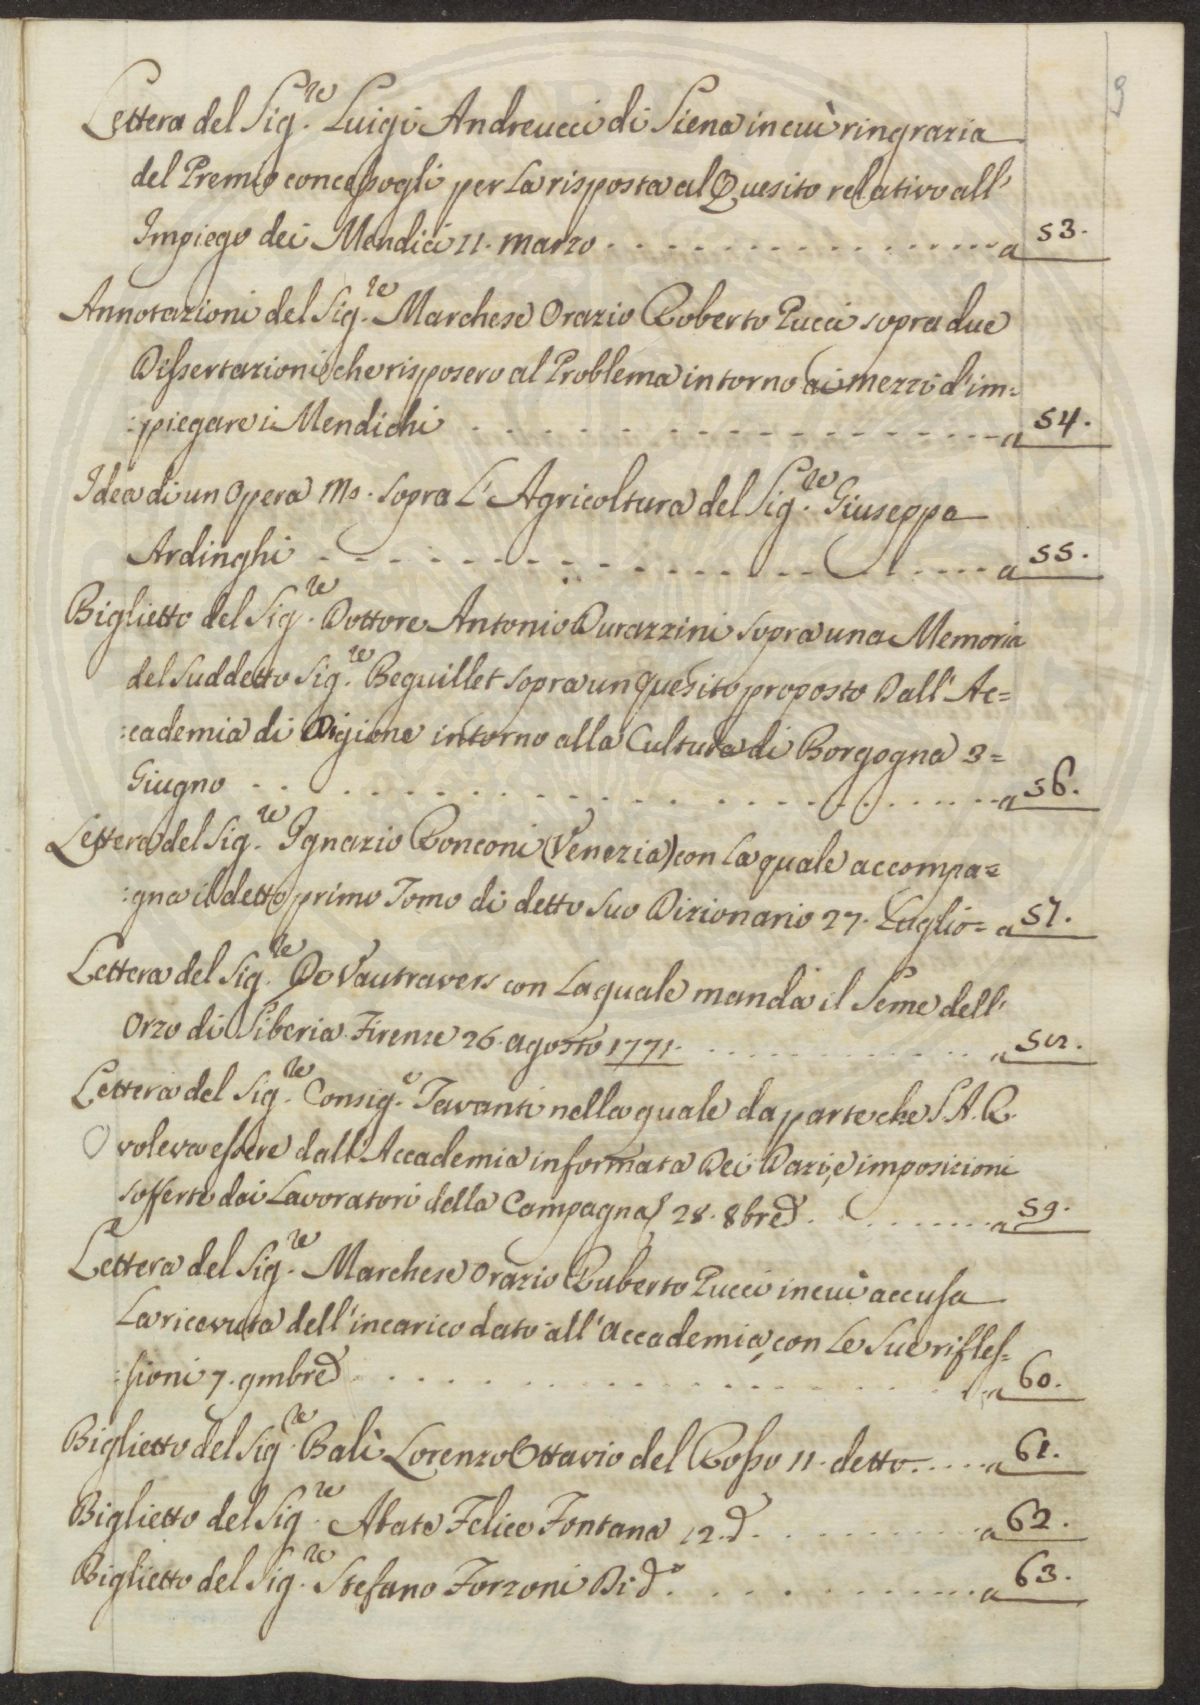 9
Lettera del Sig.re Luigi Andreucci di Siena in cui ringrazia
del Premio concessogli per la risposta al Quesito relativo all'
Impiego dei Mendici 11. marzo a 53.
Annotazioni del Sig.re Marchese Orazio Roberto Pucci sopra due
Dissertazioni che risposero al Problema intorno ai mezzi d'im=
:piegare i Mendichi a 54.
Idea di un Opera Ms. sopra L'Agricoltura del Sig.re Giuseppe
Ardinghi a 55.
Biglietto del Sig.re Dottore Antonio Durazzini sopra una Memoria
del Suddetto Sig.re Beguillet sopra un quesito proposto Dall'Ac=
:cademia di Digione intorno alla Cultura di Borgogna 3=
Giugno a 56.
Lettera del Sig.re Ignazio Ronconi (Venezia) con la quale accompa=
:gna il detto primo Tomo di detto Suo Dizionario 27. Luglio= a 57.
Lettera del Sig.re De Vautravers con la quale manda il Seme dell'
Orzo di Siberia Firenze 26. agosto 1771. a 58.
Lettera del Sig.re Consig.e Tavanti nella quale da parte che S.A.R.
voleva essere dall'Accademia informata Dei Dazi, e imposizioni
sofferte dai Lavoratori della Campagna 28. 8bre a 59.
Lettera del Sig.re Marchese Orazio Ruberto Pucci in cui accusa
La ricevuta dell'incarico dato all'Accademia, con Le Sue rifles=
:sioni 7. 9mbre a 60.
Biglietto del Sig.re Balì Lorenzo Ottavio del Rosso 11. detto a 61.
Biglietto del Sig.re Abate Felice Fontana 12. d. a 62.
Biglietto del Sig.re Stefano Forzoni Di d.o a 63.